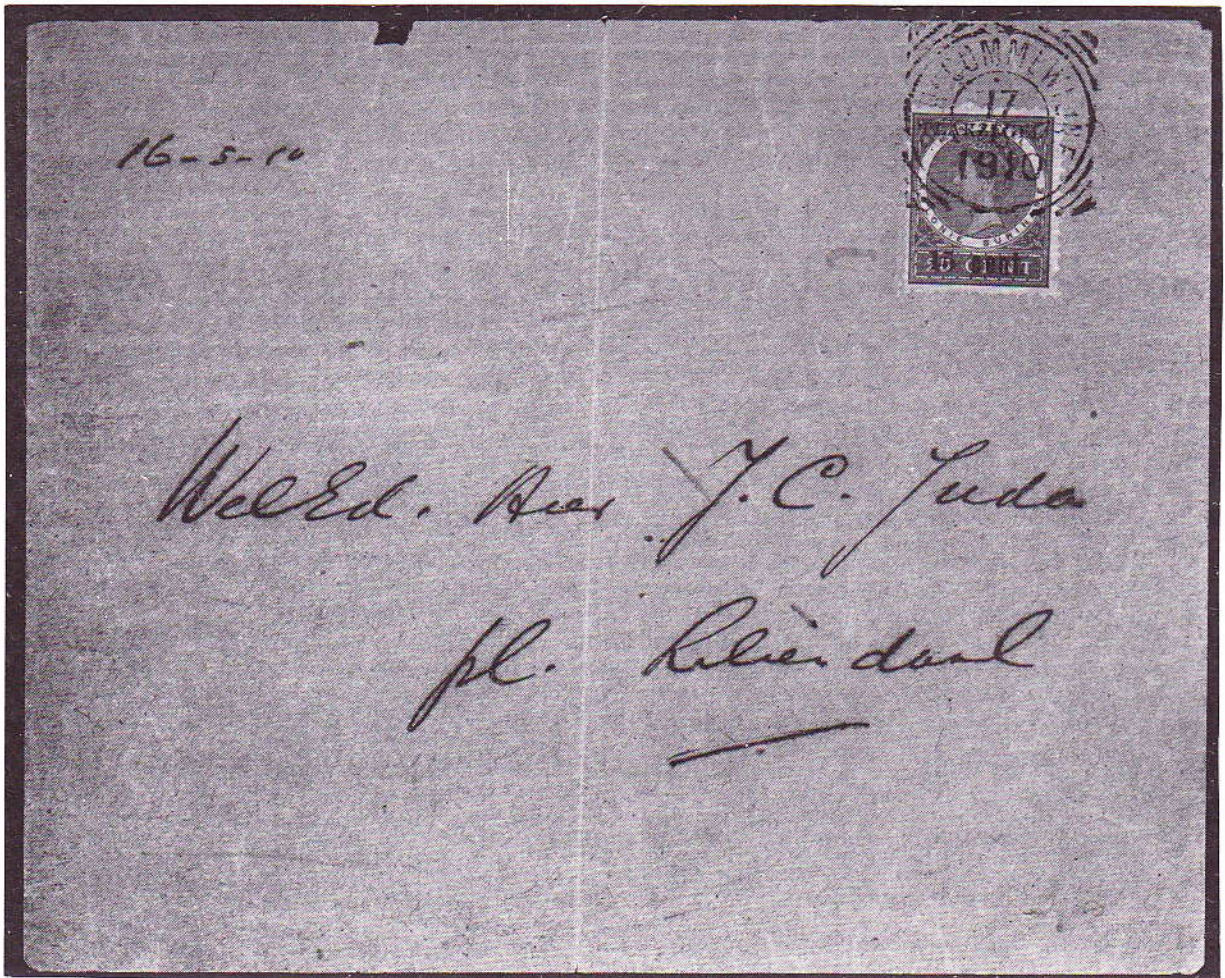 16-5-10
COMMEWIJNE
17
1910
KOLONIE SURIN
15 cent.
WelEd. Heer J. C. Juda
pl. Liliëndaal